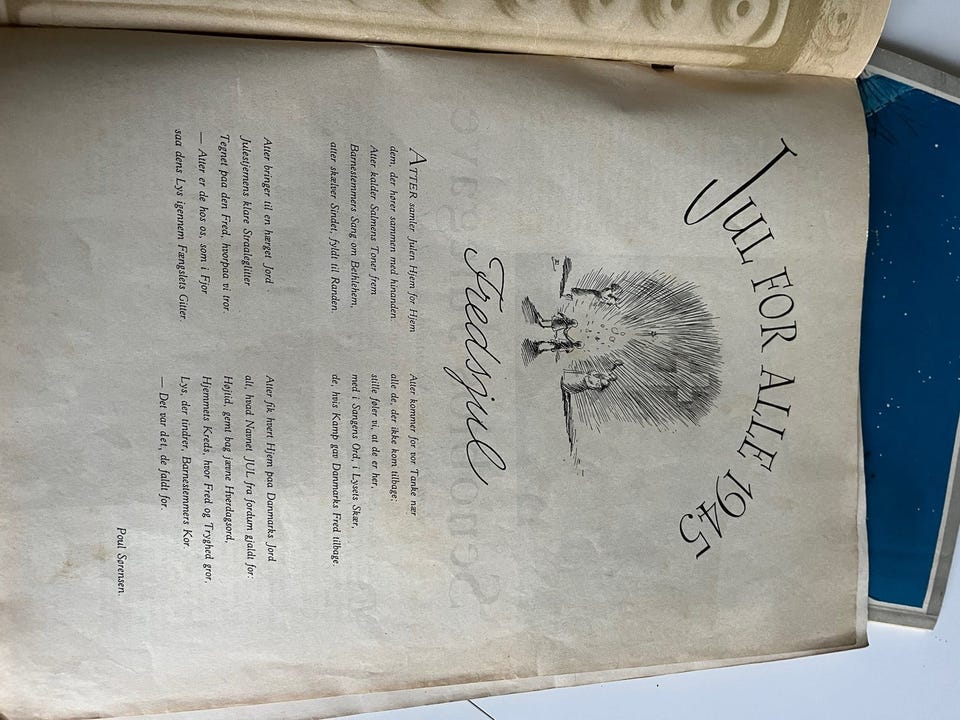 JUL FOR ALLE 1945
Fredsjul
ATTER samler Julen Hjem for Hjem
dem, der hører sammen med hinanden.
Atter kalder Salmens Toner frem
Barnestemmers Sang om Bethlehem,
atter skælver Sindet, fyldt til Randen.
Atter bringer til en hærget Jord
Julestjernens klare Straaleglitter
Tegnet paa den Fred, hvorpaa vi tror.
— Atter er de hos os, som i Fjor
saa dens Lys igennem Fængslets Gitter.
Atter kommer for vor Tanke nær
alle de, der ikke kom tilbage;
stille føler vi, at de er her,
med i Sangens Ord, i Lysets Skær,
de, hvis Kamp gav Danmarks Fred tilbage.
Atter fik hvert Hjem paa Danmarks Jord
alt, hvad Navnet JUL fra fordum gjaldt for:
Højtid, gemt bag jævne Hverdagsord,
Hjemmets Kreds, hvor Fred og Tryghed gror,
Lys, der tindrer, Barnestemmers Kor.
— Det var det, de faldt for.
Poul Sørensen.